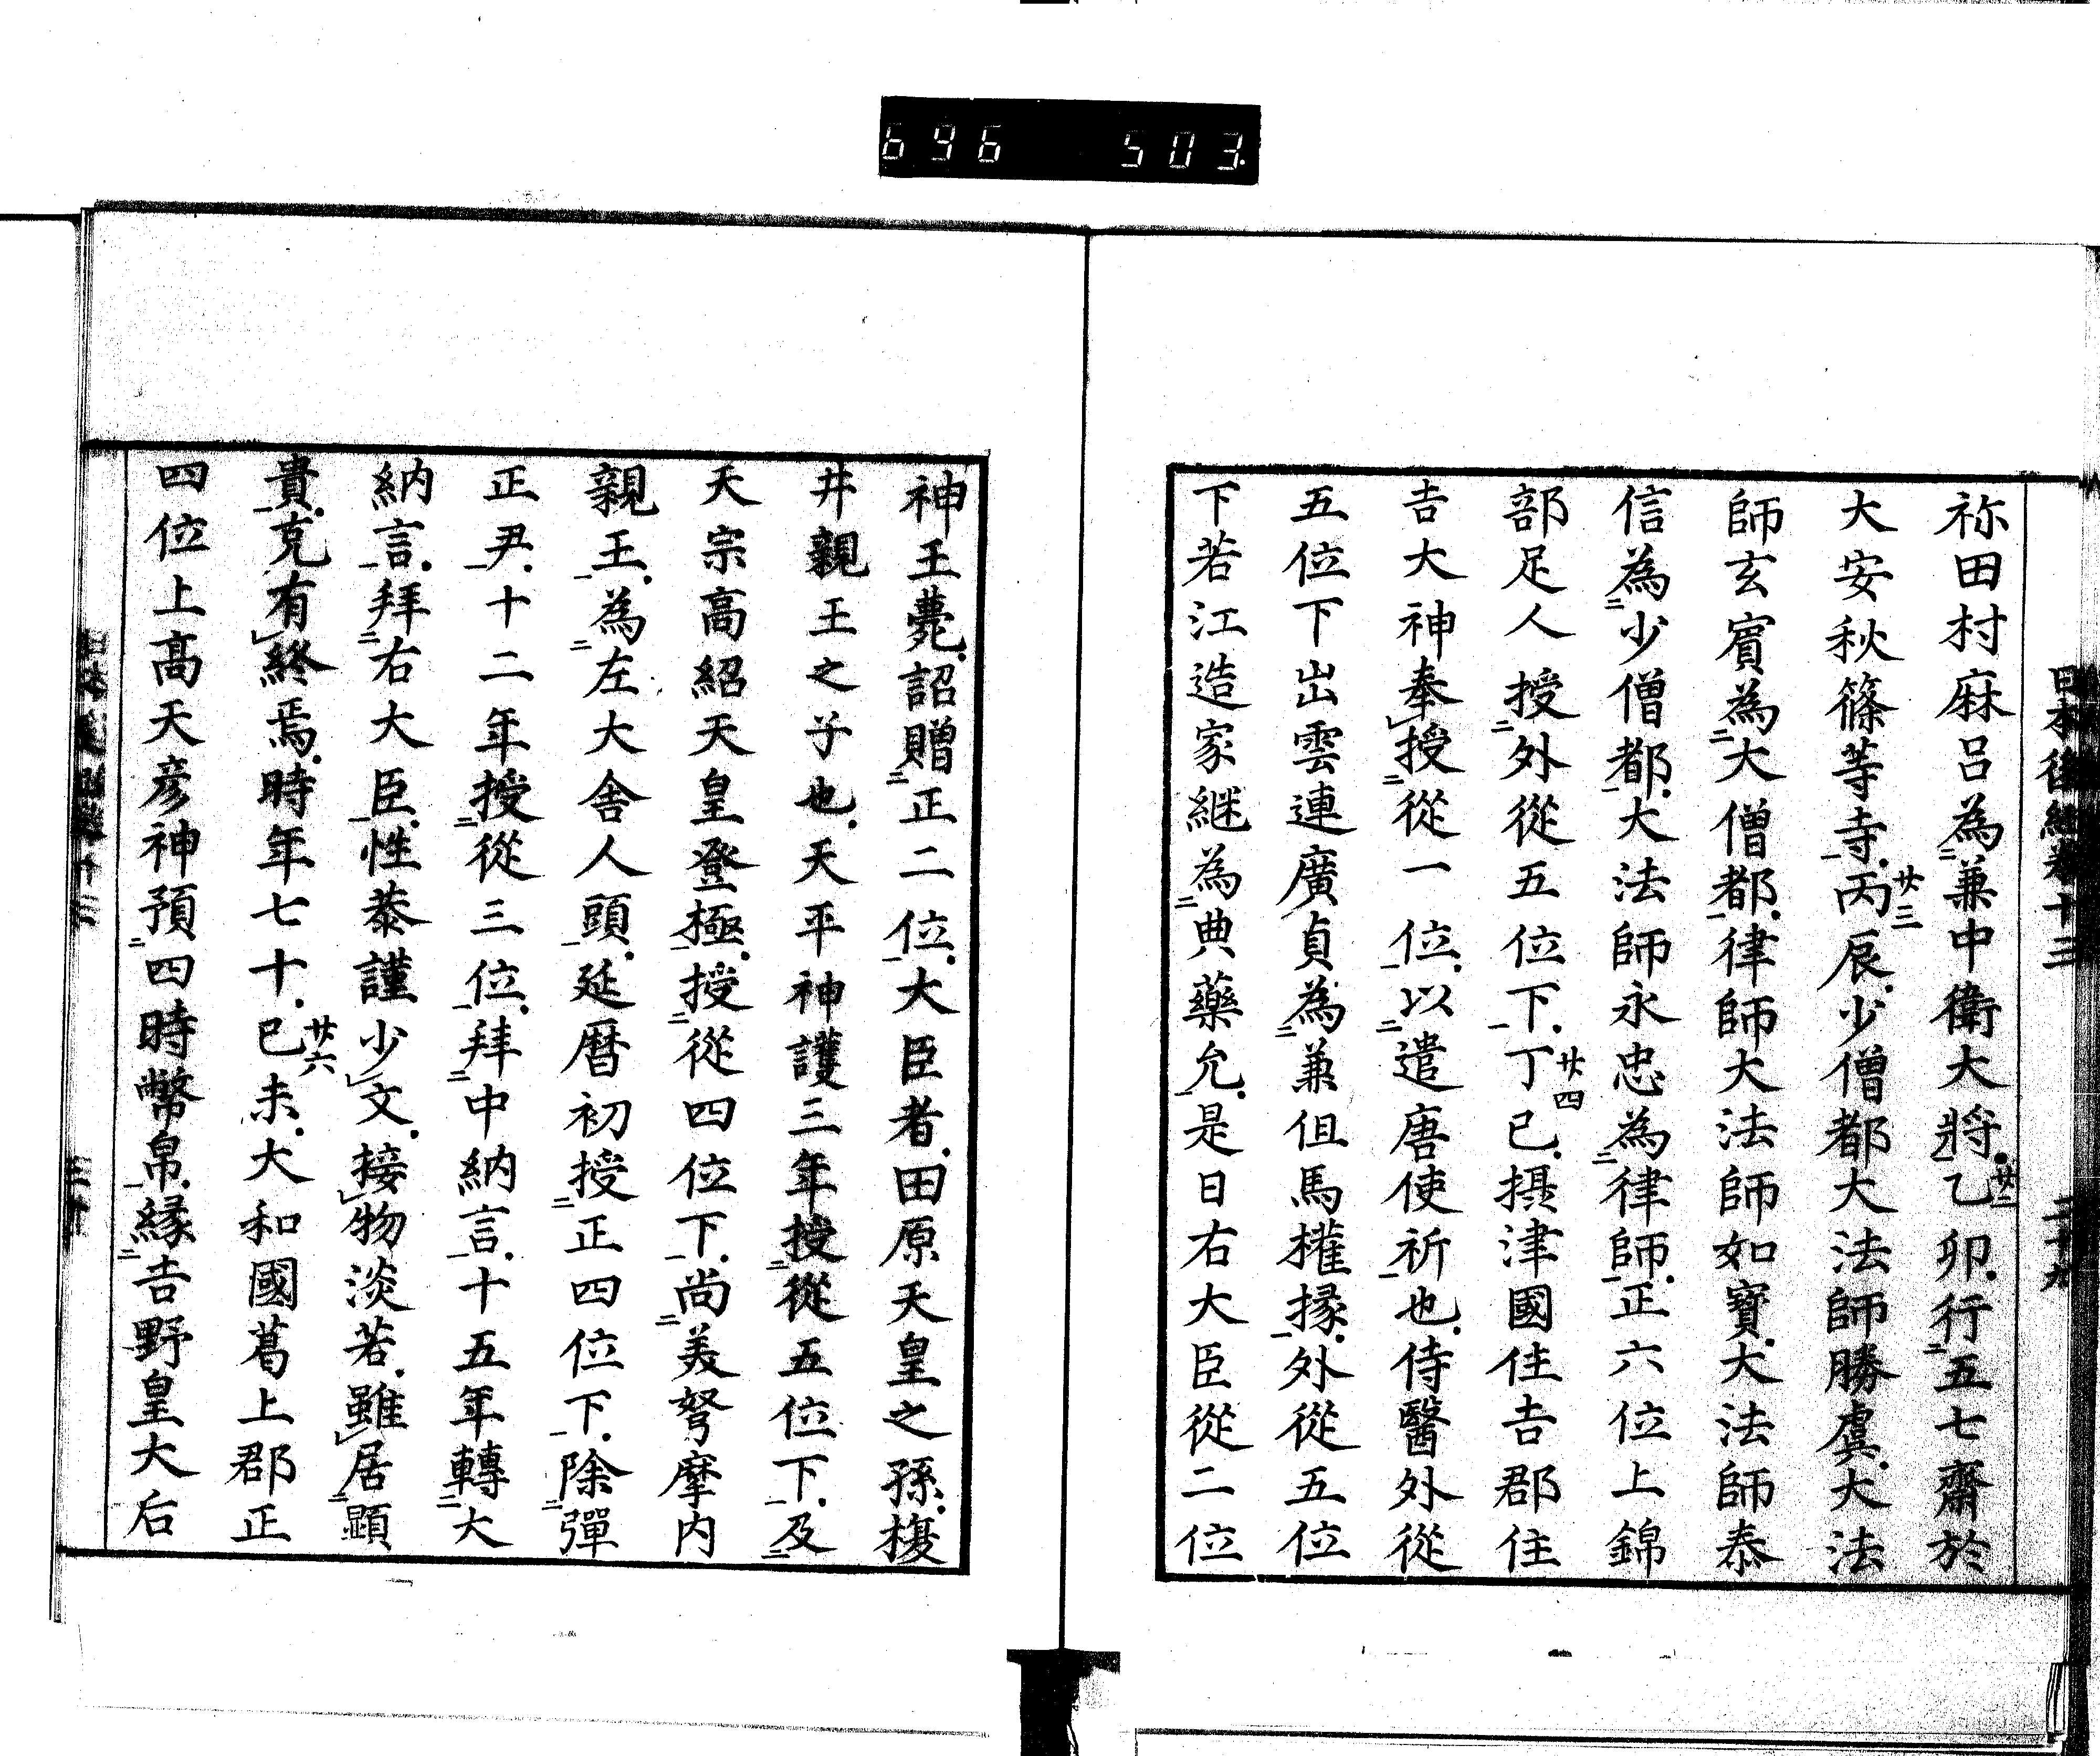 696 503
日本後紀卷十三 二十九
祢田村麻呂為二兼中衛大將一乙卯行二五七齋於 廿二
大安秋篠等寺一丙辰少僧都大法師勝虞大法 廿三
師玄賓為二大僧都一律師大法師如寶大法師泰
信為二少僧都一大法師永忠為二律師一正六位上錦
部足人授二外從五位下一丁巳攝津國住吉郡住 廿四
吉大神奉授二從一位一以二遣唐使祈一也侍醫外從
五位下出雲連廣貞為二兼但馬權掾一外從五位
下若江造家継為二典藥允一是日右大臣從二位
神王薨詔贈二正二位一大臣者田原天皇之孫榎
井親王之子也天平神護三年授二從五位下一及二
天宗高紹天皇登極一授二從四位下一尚二美弩摩内
親王一為二左大舎人頭一延暦初授二正四位下一除二彈
正尹一十二年授二從三位一拜二中納言一十五年轉二大
納言一拜二右大臣一性恭謹少文接物淡若雖居二顕
貴一克有終焉時年七十己未大和國葛上郡正 廿六
四位上髙天彦神預二四時幣帛一縁二吉野皇大后